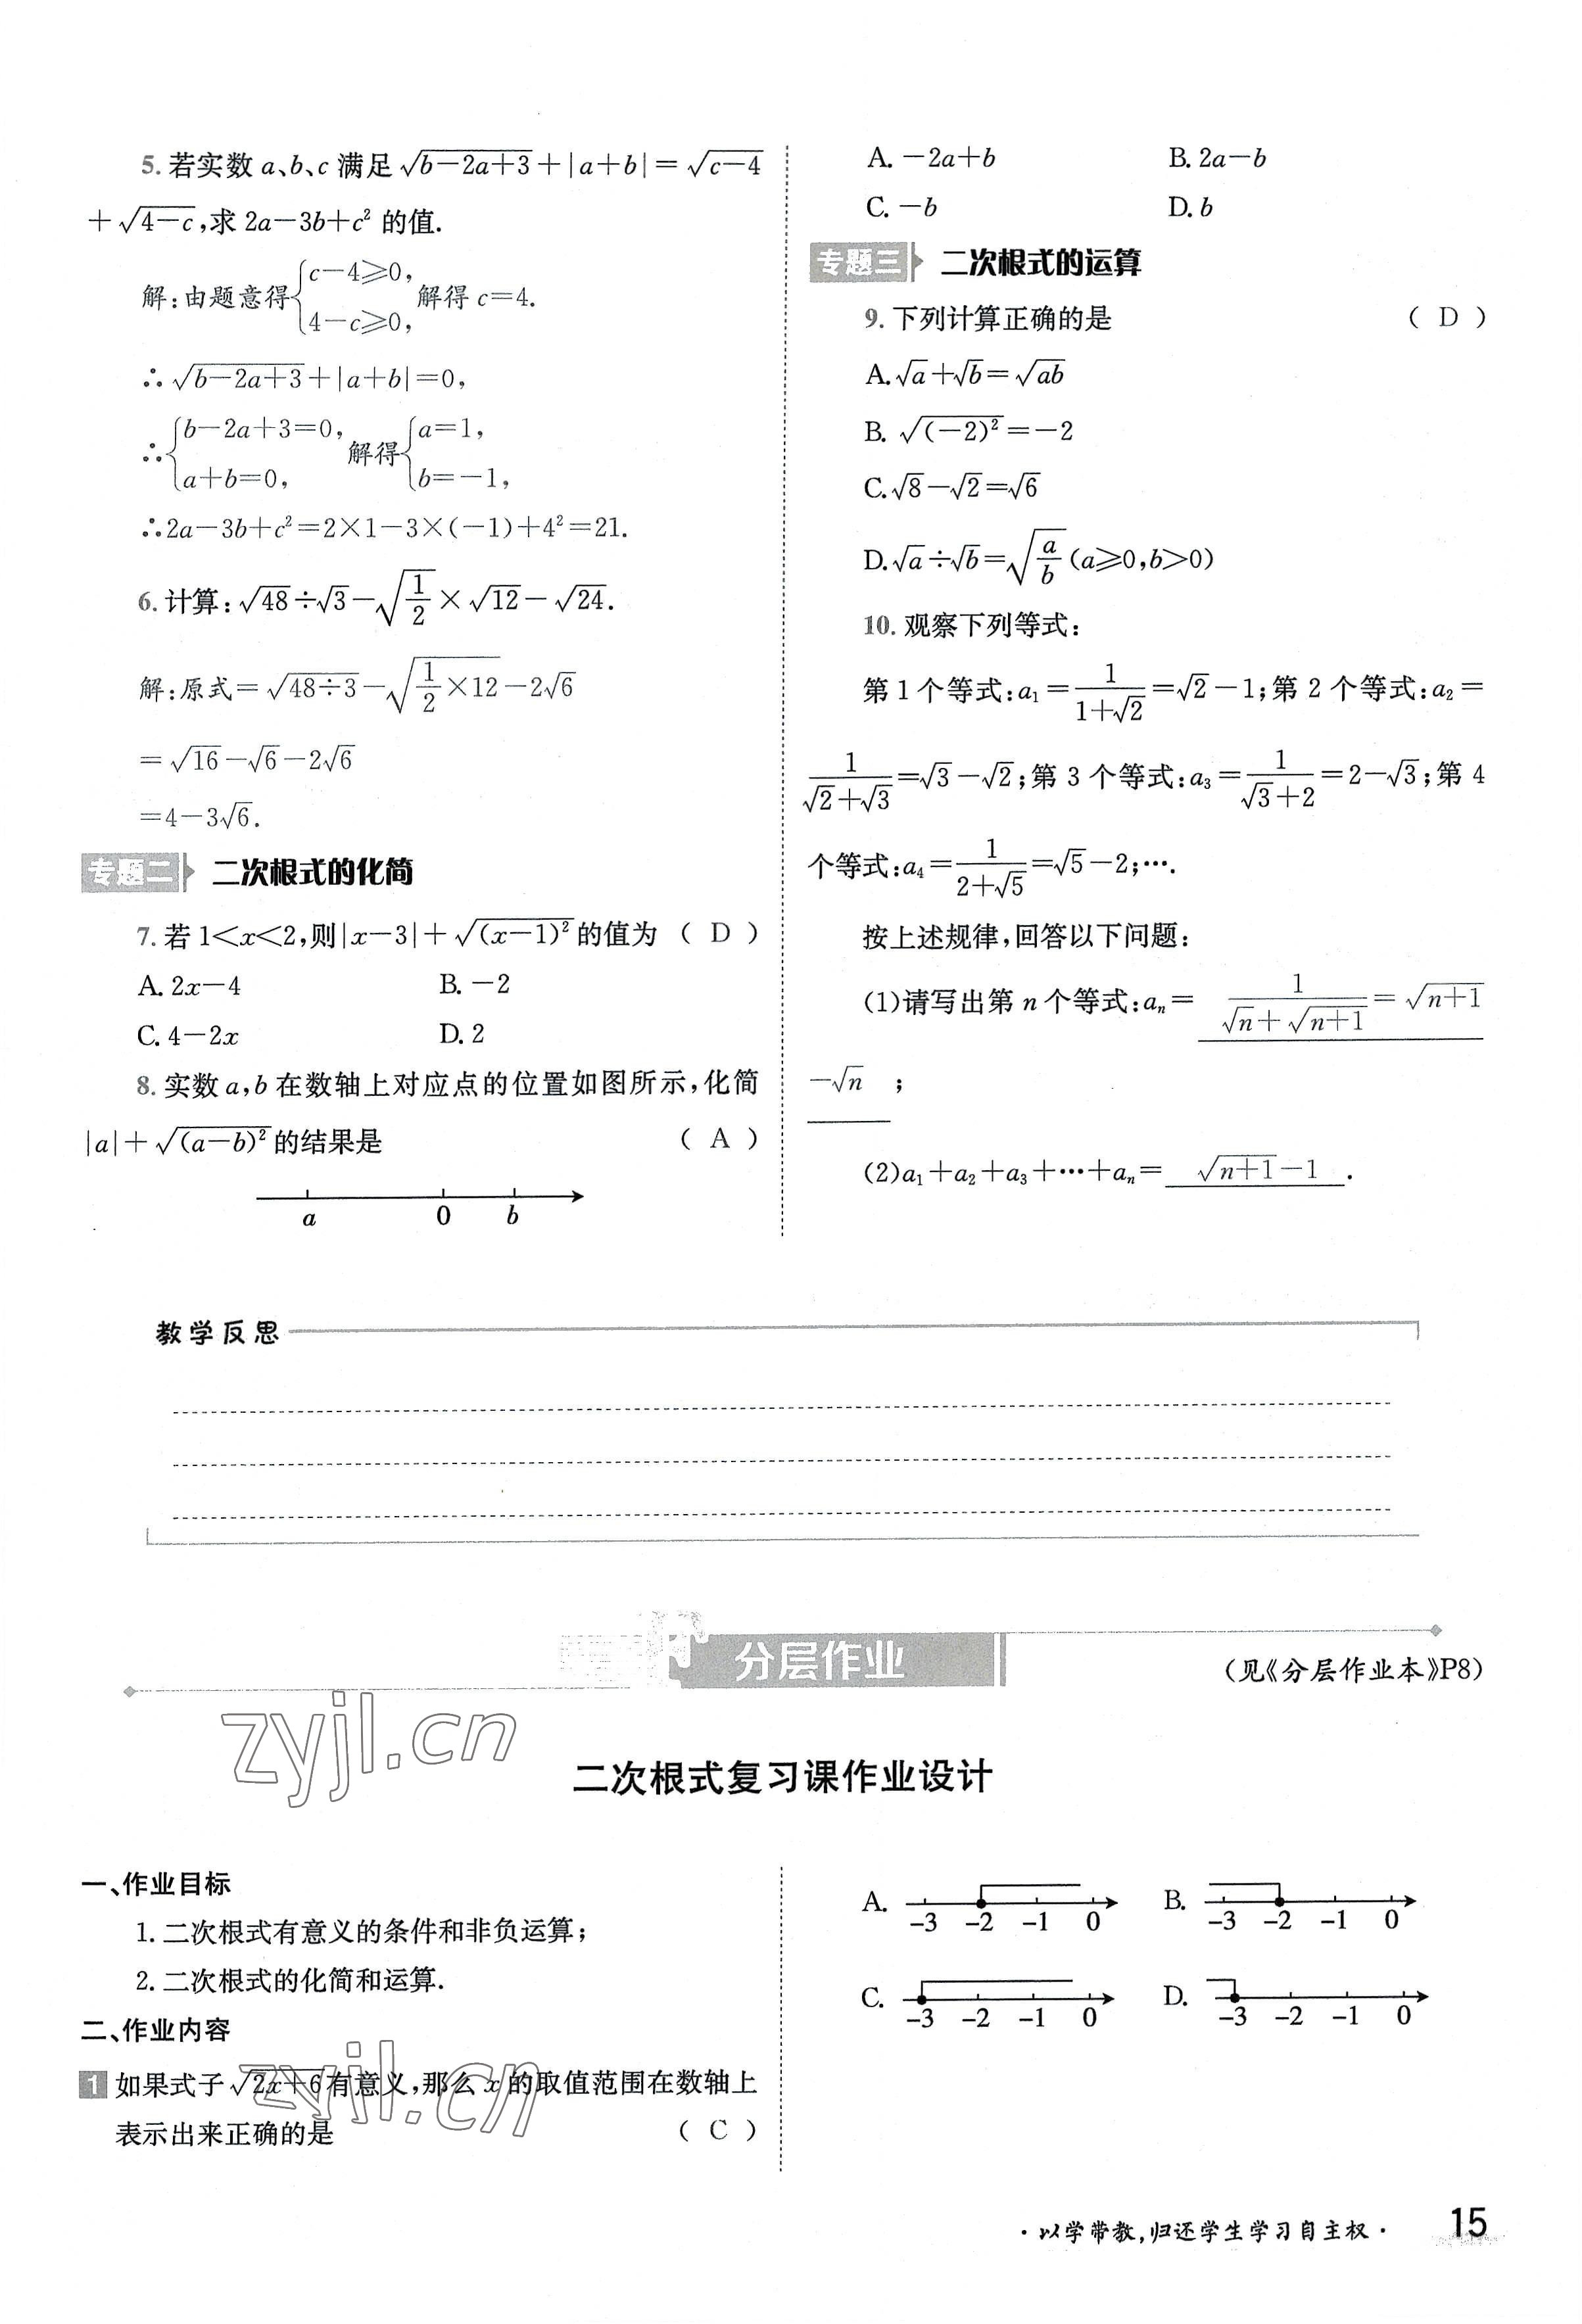 5. 若实数 a、b、c 满足 √(b−2a+3)+|a+b|=√(c−4)
+√(4−c),求 2a−3b+c² 的值.
解:由题意得{c−4≥0, 4−c≥0, 解得 c=4.
∴√(b−2a+3)+|a+b|=0,
∴{b−2a+3=0, a+b=0, 解得{a=1, b=−1,
∴2a−3b+c²=2×1−3×(−1)+4²=21.
6. 计算:√48÷√3−√(1/2)×√12−√24.
解:原式=√(48÷3)−√(1/2×12)−2√6
=√16−√6−2√6
=4−3√6.
专题二 二次根式的化简
7. 若 1<x<2,则|x−3|+√((x−1)²)的值为 ( D )
A. 2x−4 B. −2
C. 4−2x D. 2
8. 实数 a,b 在数轴上对应点的位置如图所示,化简
|a|+√((a−b)²)的结果是 ( A )
a 0 b
A. −2a+b B. 2a−b
C. −b D. b
专题三 二次根式的运算
9. 下列计算正确的是 ( D )
A. √a+√b=√(ab)
B. √((−2)²)=−2
C. √8−√2=√6
D. √a÷√b=√(a/b)(a≥0,b>0)
10. 观察下列等式:
第 1 个等式:a₁=1/(1+√2)=√2−1;第 2 个等式:a₂=
1/(√2+√3)=√3−√2;第 3 个等式:a₃=1/(√3+2)=2−√3;第 4
个等式:a₄=1/(2+√5)=√5−2;….
按上述规律,回答以下问题:
(1)请写出第 n 个等式:aₙ= 1/(√n+√(n+1))=√(n+1)
−√n ;
(2)a₁+a₂+a₃+…+aₙ= √(n+1)−1 .
教学反思
分层作业
(见《分层作业本》P8)
zyjl.cn
二次根式复习课作业设计
一、作业目标
1. 二次根式有意义的条件和非负运算;
2. 二次根式的化简和运算.
二、作业内容
1 如果式子√(2x+6)有意义,那么 x 的取值范围在数轴上
表示出来正确的是 ( C )
zyjl.cn
A. −3 −2 −1 0 B. −3 −2 −1 0
C. −3 −2 −1 0 D. −3 −2 −1 0
·以学带教,归还学生学习自主权· 15